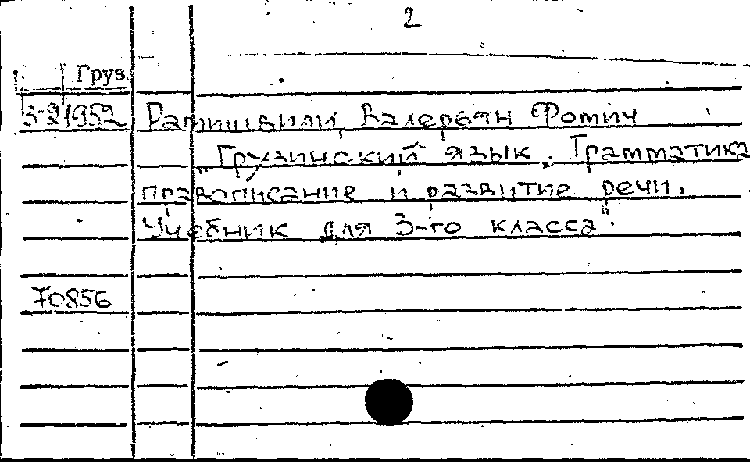 2
Груз.
3-21952 Рамишвили, Валерьян Фомич
„Грузинский язык. Грамматика
правописание и развитие речи.
Учебник для 3-го класса".
70856